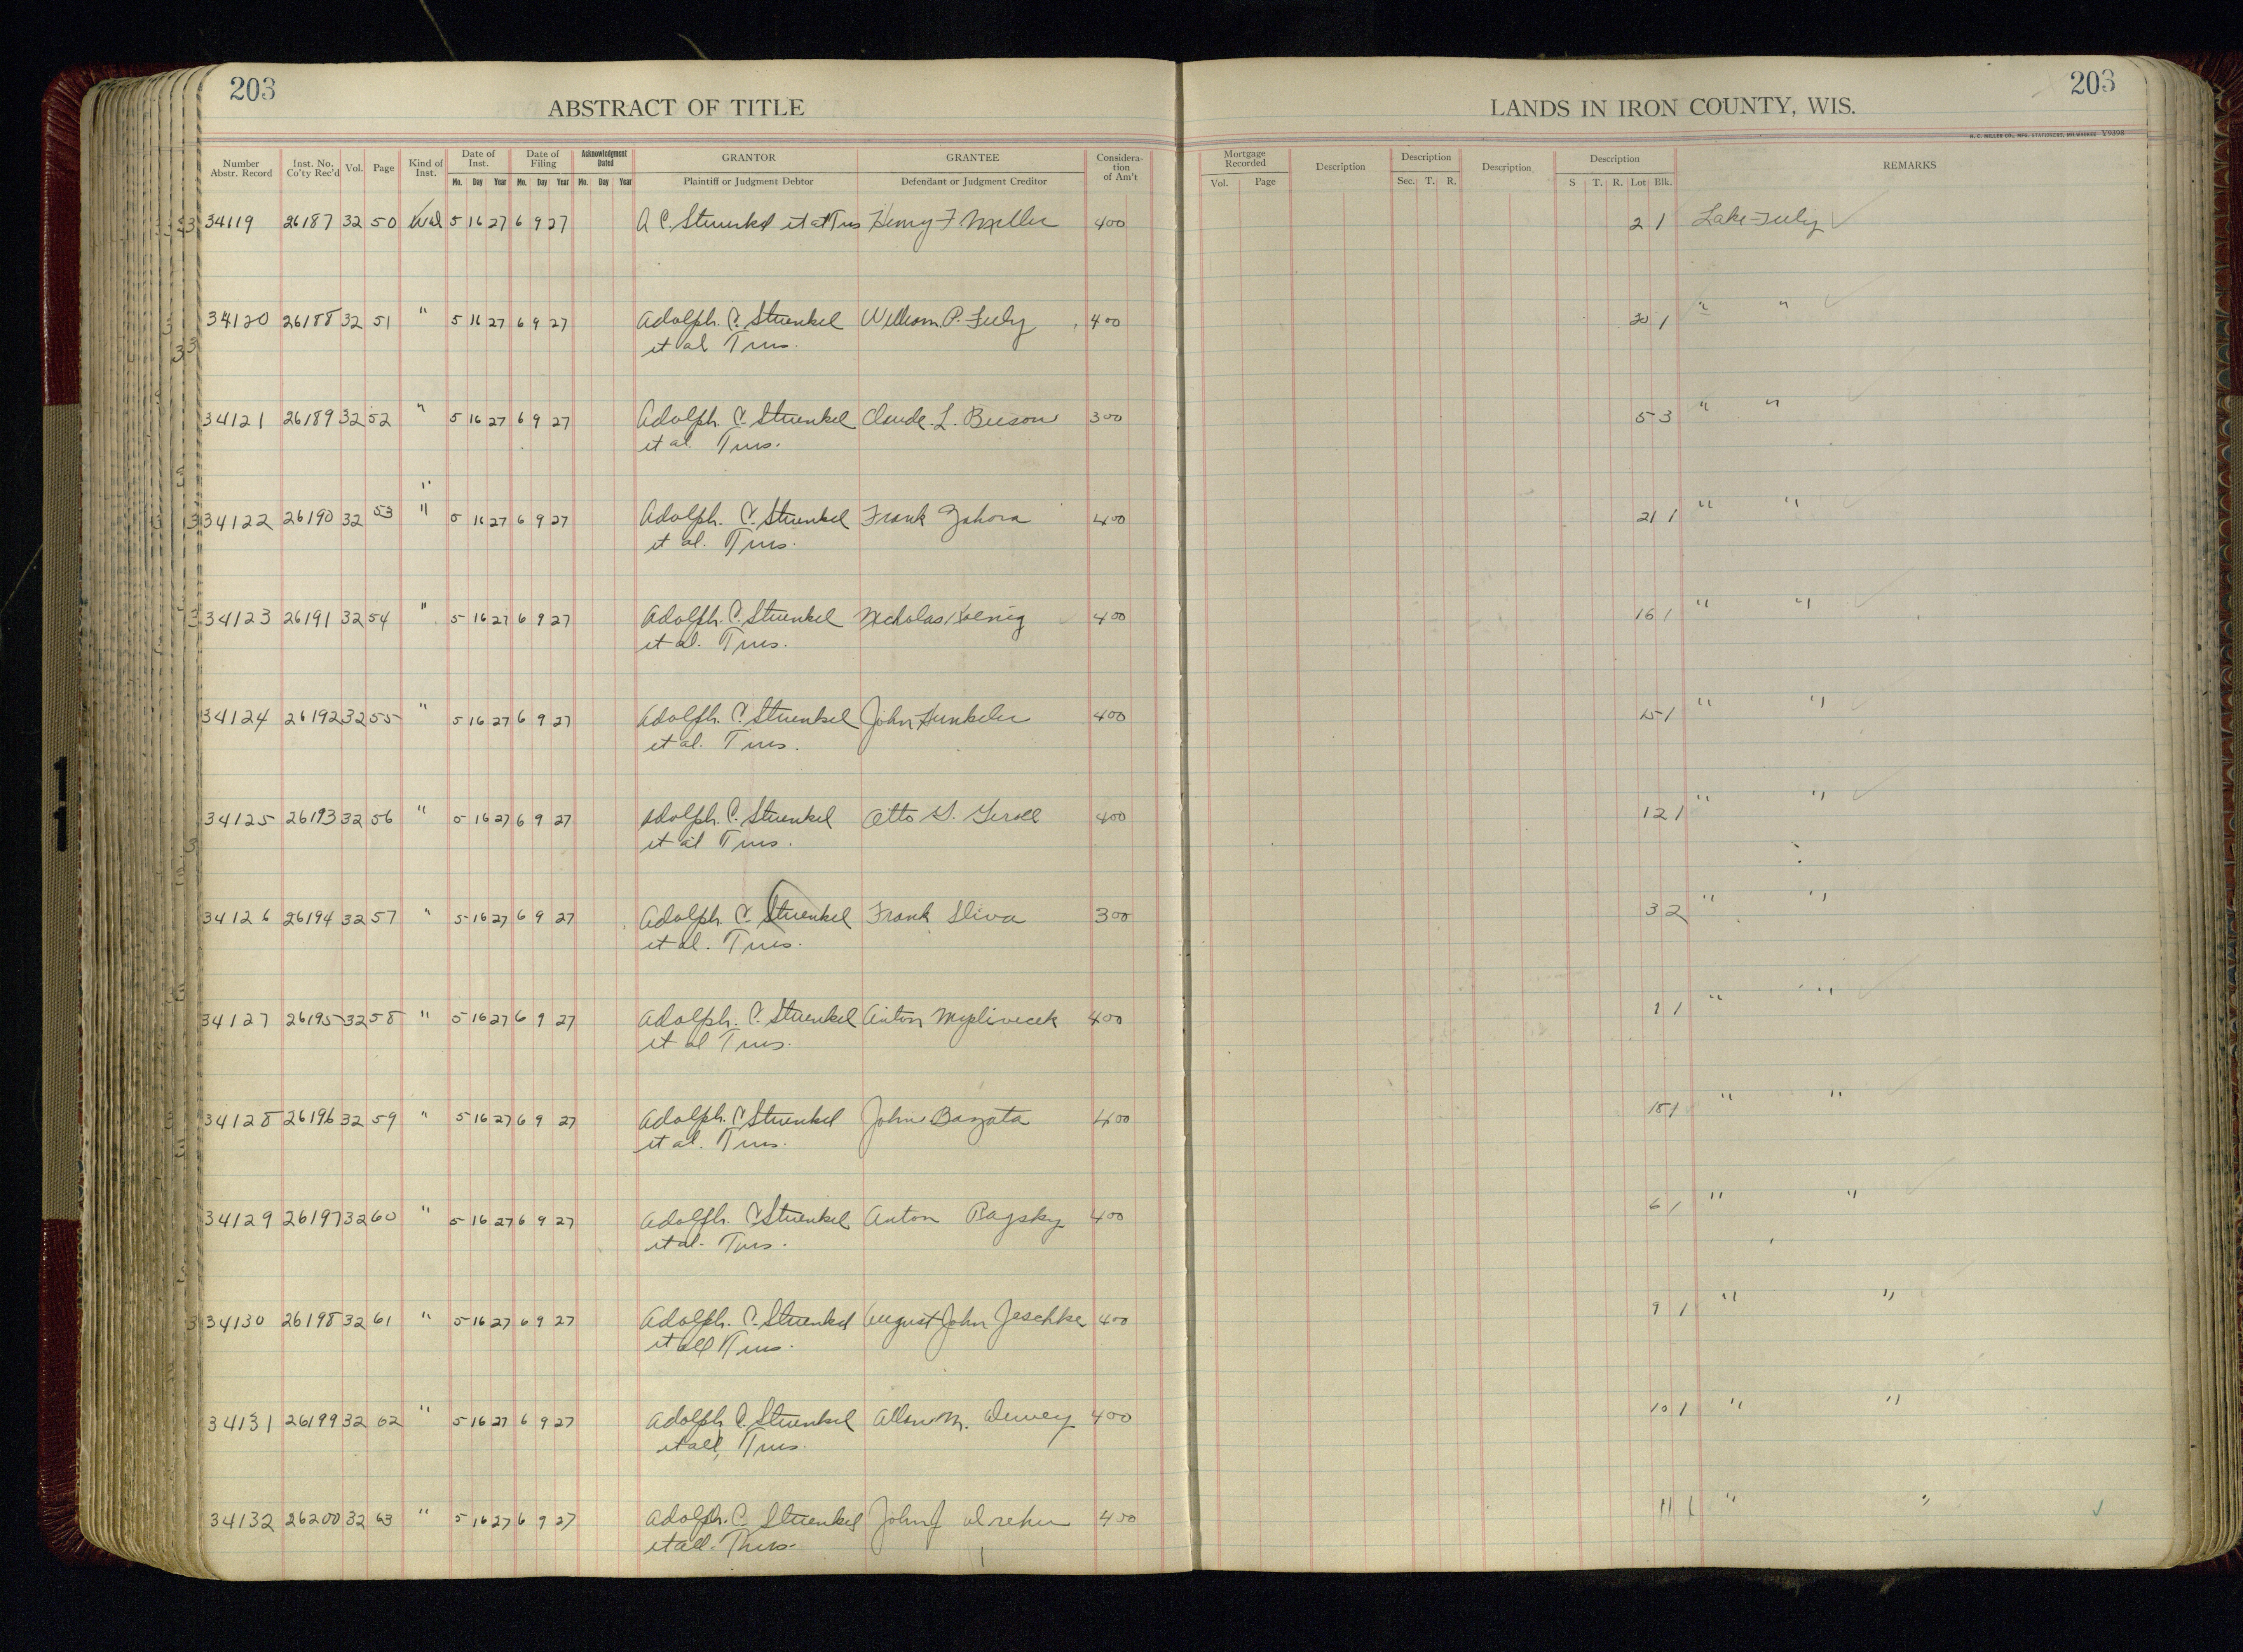 203
ABSTRACT OF TITLE
LANDS IN IRON COUNTY, WIS.
203
H. C. MILLER CO., MFG. STATIONERS, MILWAUKEE V9398
Number Abstr. Record Inst. No. Co'ty Rec'd Vol. Page Kind of Inst. Date of Inst. Date of Filing Acknowledgment Dated GRANTOR GRANTEE Considera-tion of Am't Mortgage Recorded Description Description Description Description REMARKS
Mo. Day Year Mo. Day Year Mo. Day Year Plaintiff or Judgment Debtor Defendant or Judgment Creditor Vol. Page Sec. T. R. S T. R. Lot Blk.
34119 26187 32 50 Wd 5 16 27 6 9 27 A C. Stuenkel et al Trus Henry F. Meller 400 2 1 Lake July
34120 26188 32 51 " 5 16 27 6 9 27 Adolph. C. Stuenkel William P. July 400 20 1 " "
et al Trus.
34121 26189 32 52 " 5 16 27 6 9 27 Adolph. C. Stuenkel Claude. L. Beeson 300 5 3 " "
et al. Trus.
"
34122 26190 32 53 " 5 16 27 6 9 27 Adolph. C. Stuenkel Frank Zahora 400 21 1 " "
et al. Trus.
34123 26191 32 54 " 5 16 27 6 9 27 Adolph. C. Stuenkel Nicholas Koenig 400 16 1 " "
et al. Trus.
34124 26192 32 55 " 5 16 27 6 9 27 Adolph. C. Stuenkel John Hunkeler 400 15 1 " "
et al. Trus.
34125 26193 32 56 " 5 16 27 6 9 27 Adolph. C. Stuenkel Otto 400 12 1 " "
et al Trus.
34126 26194 32 57 " 5 16 27 6 9 27 Adolph. C. Stuenkel Frank Sliva 300 3 2 " "
et al. Trus.
34127 26195 32 58 " 5 16 27 6 9 27 Adolph. C. Stuenkel Anton Myslivecek 400 1 1 " "
et al Trus.
34128 26196 32 59 " 5 16 27 6 9 27 Adolph. C. Stuenkel John Bazata 400 18 1 " "
et al. Trus.
34129 26197 32 60 " 5 16 27 6 9 27 Adolph. C Stuenkel Anton 400 6 1 " "
et al. Trus.
34130 26198 32 61 " 5 16 27 6 9 27 Adolph. C. Stuenkel August John Jeschke 400 9 1 " "
et all Trus.
34131 26199 32 62 " 5 16 27 6 9 27 Adolph C. Stuenkel Allen M. Dewey 400 10 1 " "
et all, Trus.
34132 26200 32 63 " 5 16 27 6 9 27 Adolph. C. Stuenkel John J Dreher 400 11 1 " "
et all. Trus.